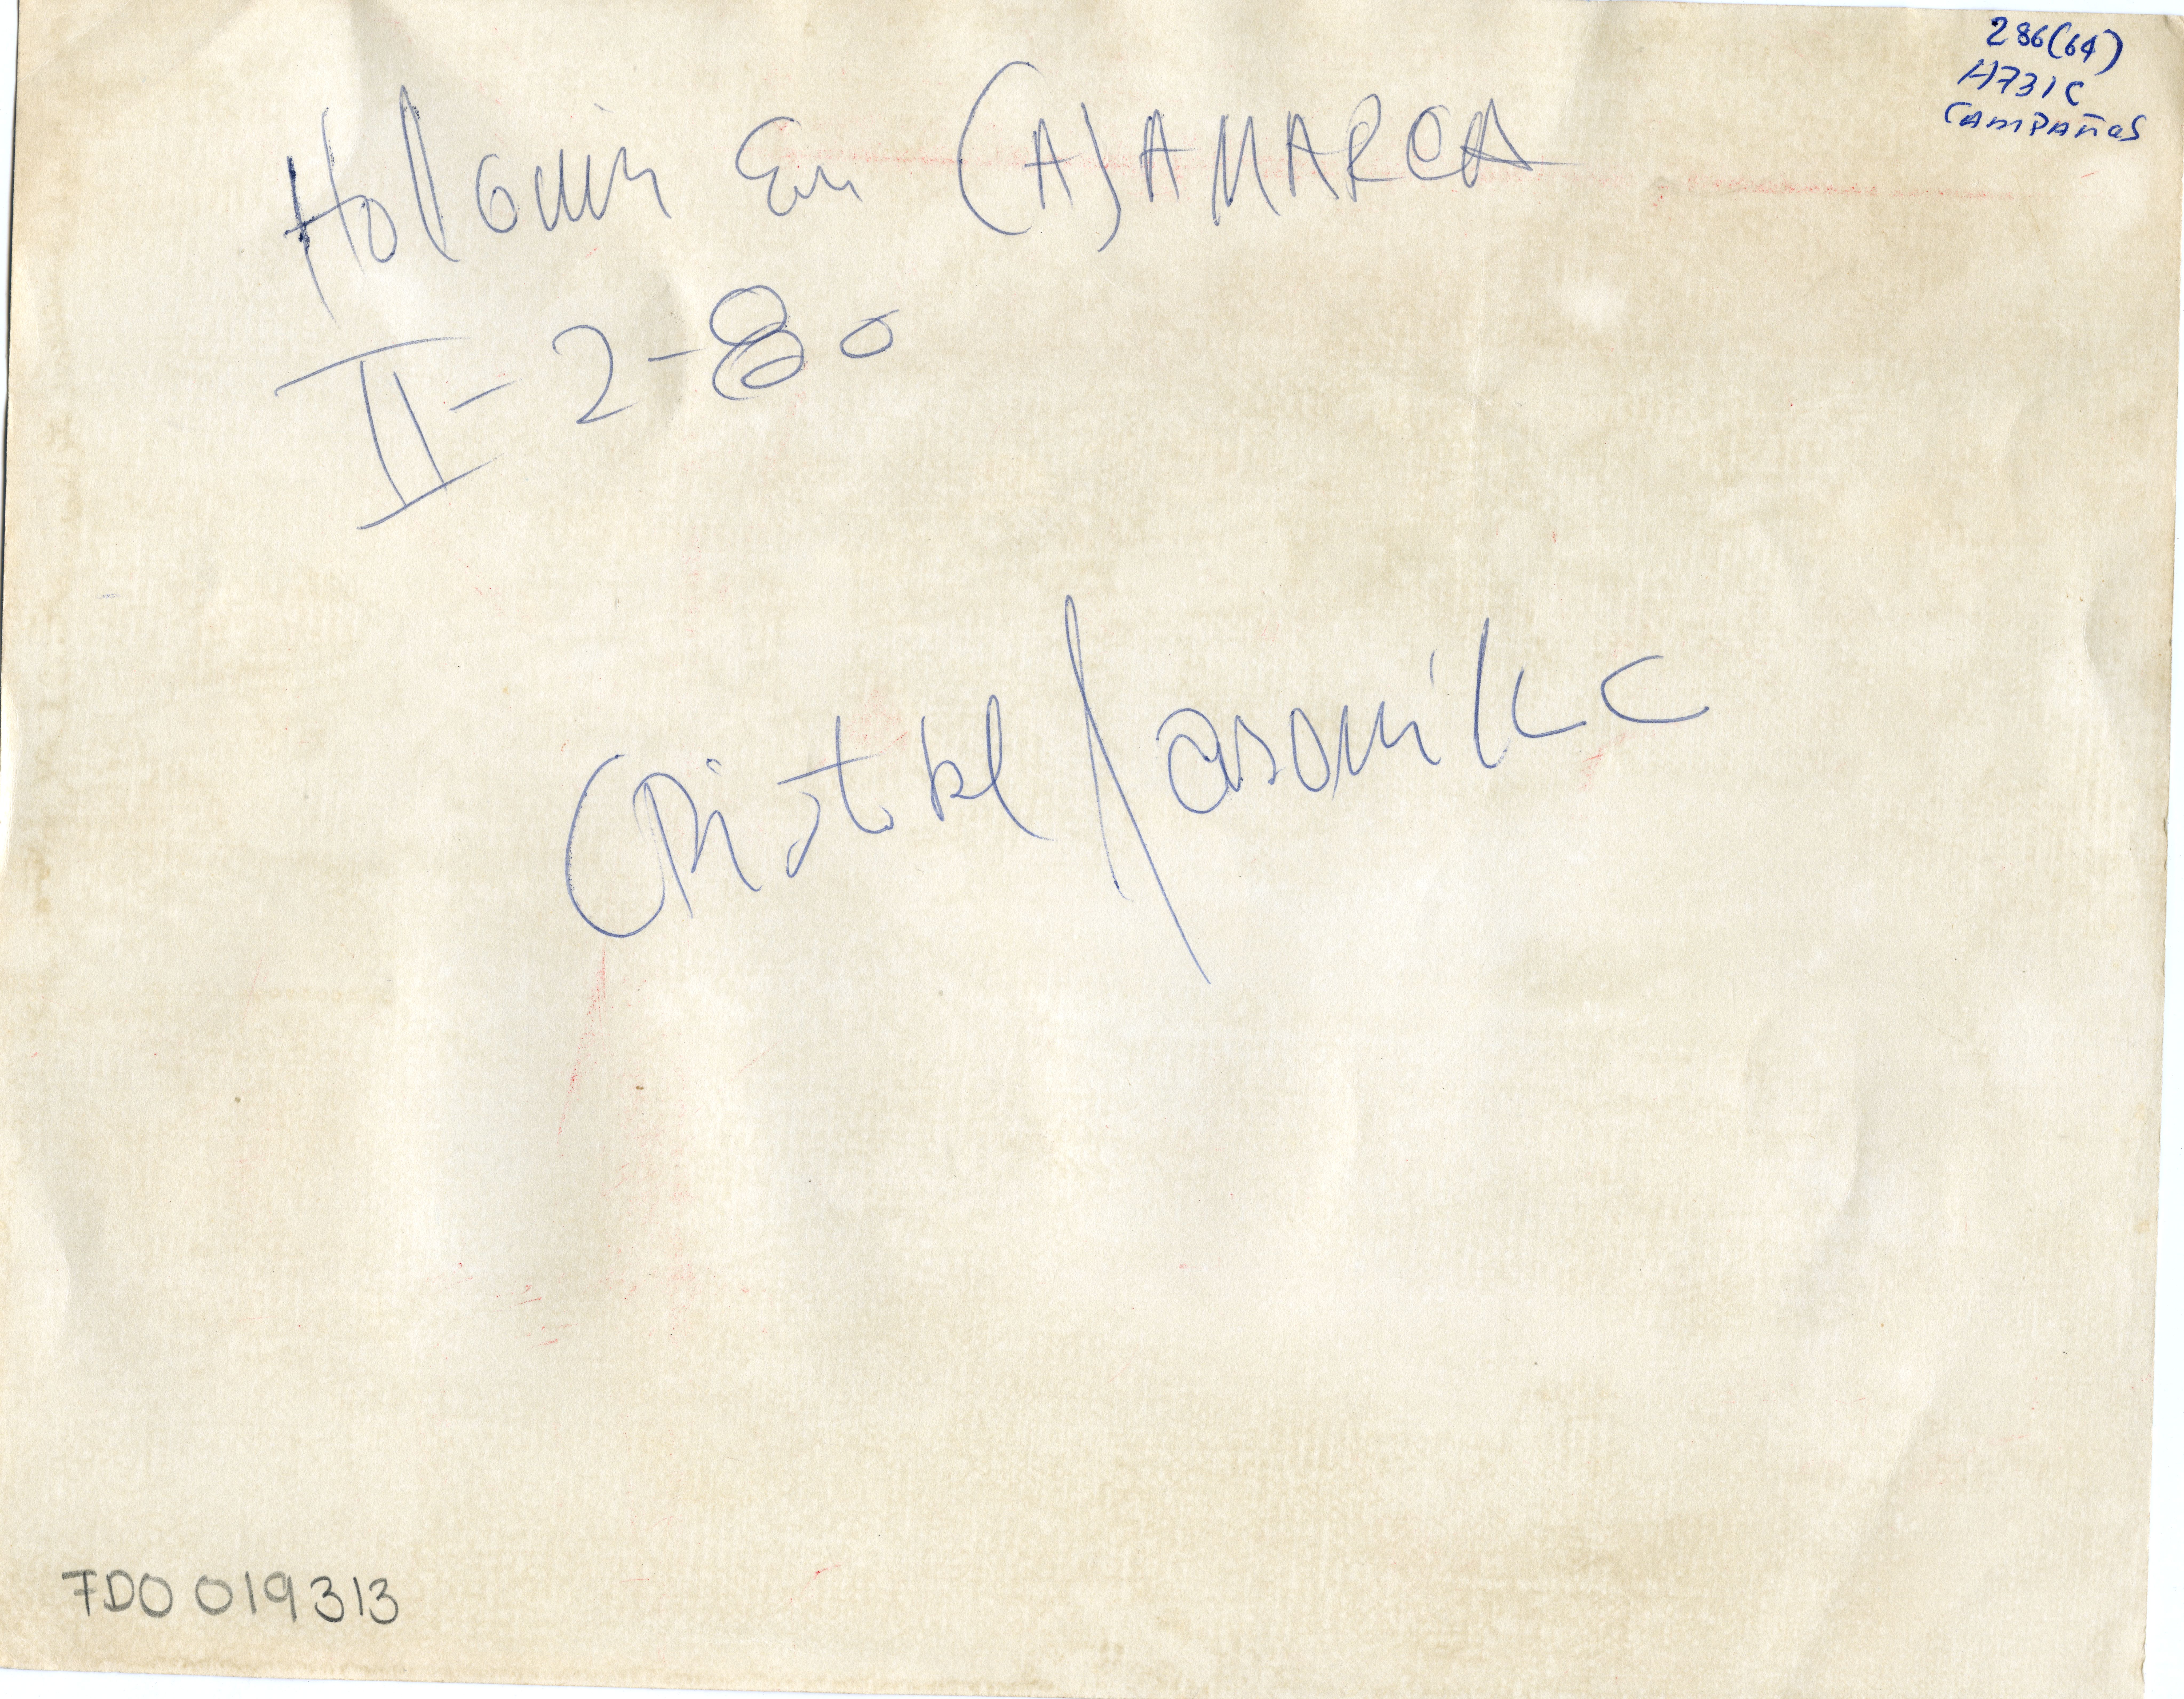 286(64)
H731C
CAMPAÑAS
Holguin En CAJAMARCA
II-2-80
Cristobal
7D0019313